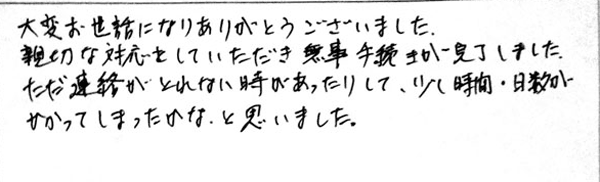 大変お世話になりありがとうございました.
親切な対応をしていただき無事手続きが完了しました.
ただ連絡がとれない時があったりして、少し時間・日数が
かかってしまったかな.と思いました。